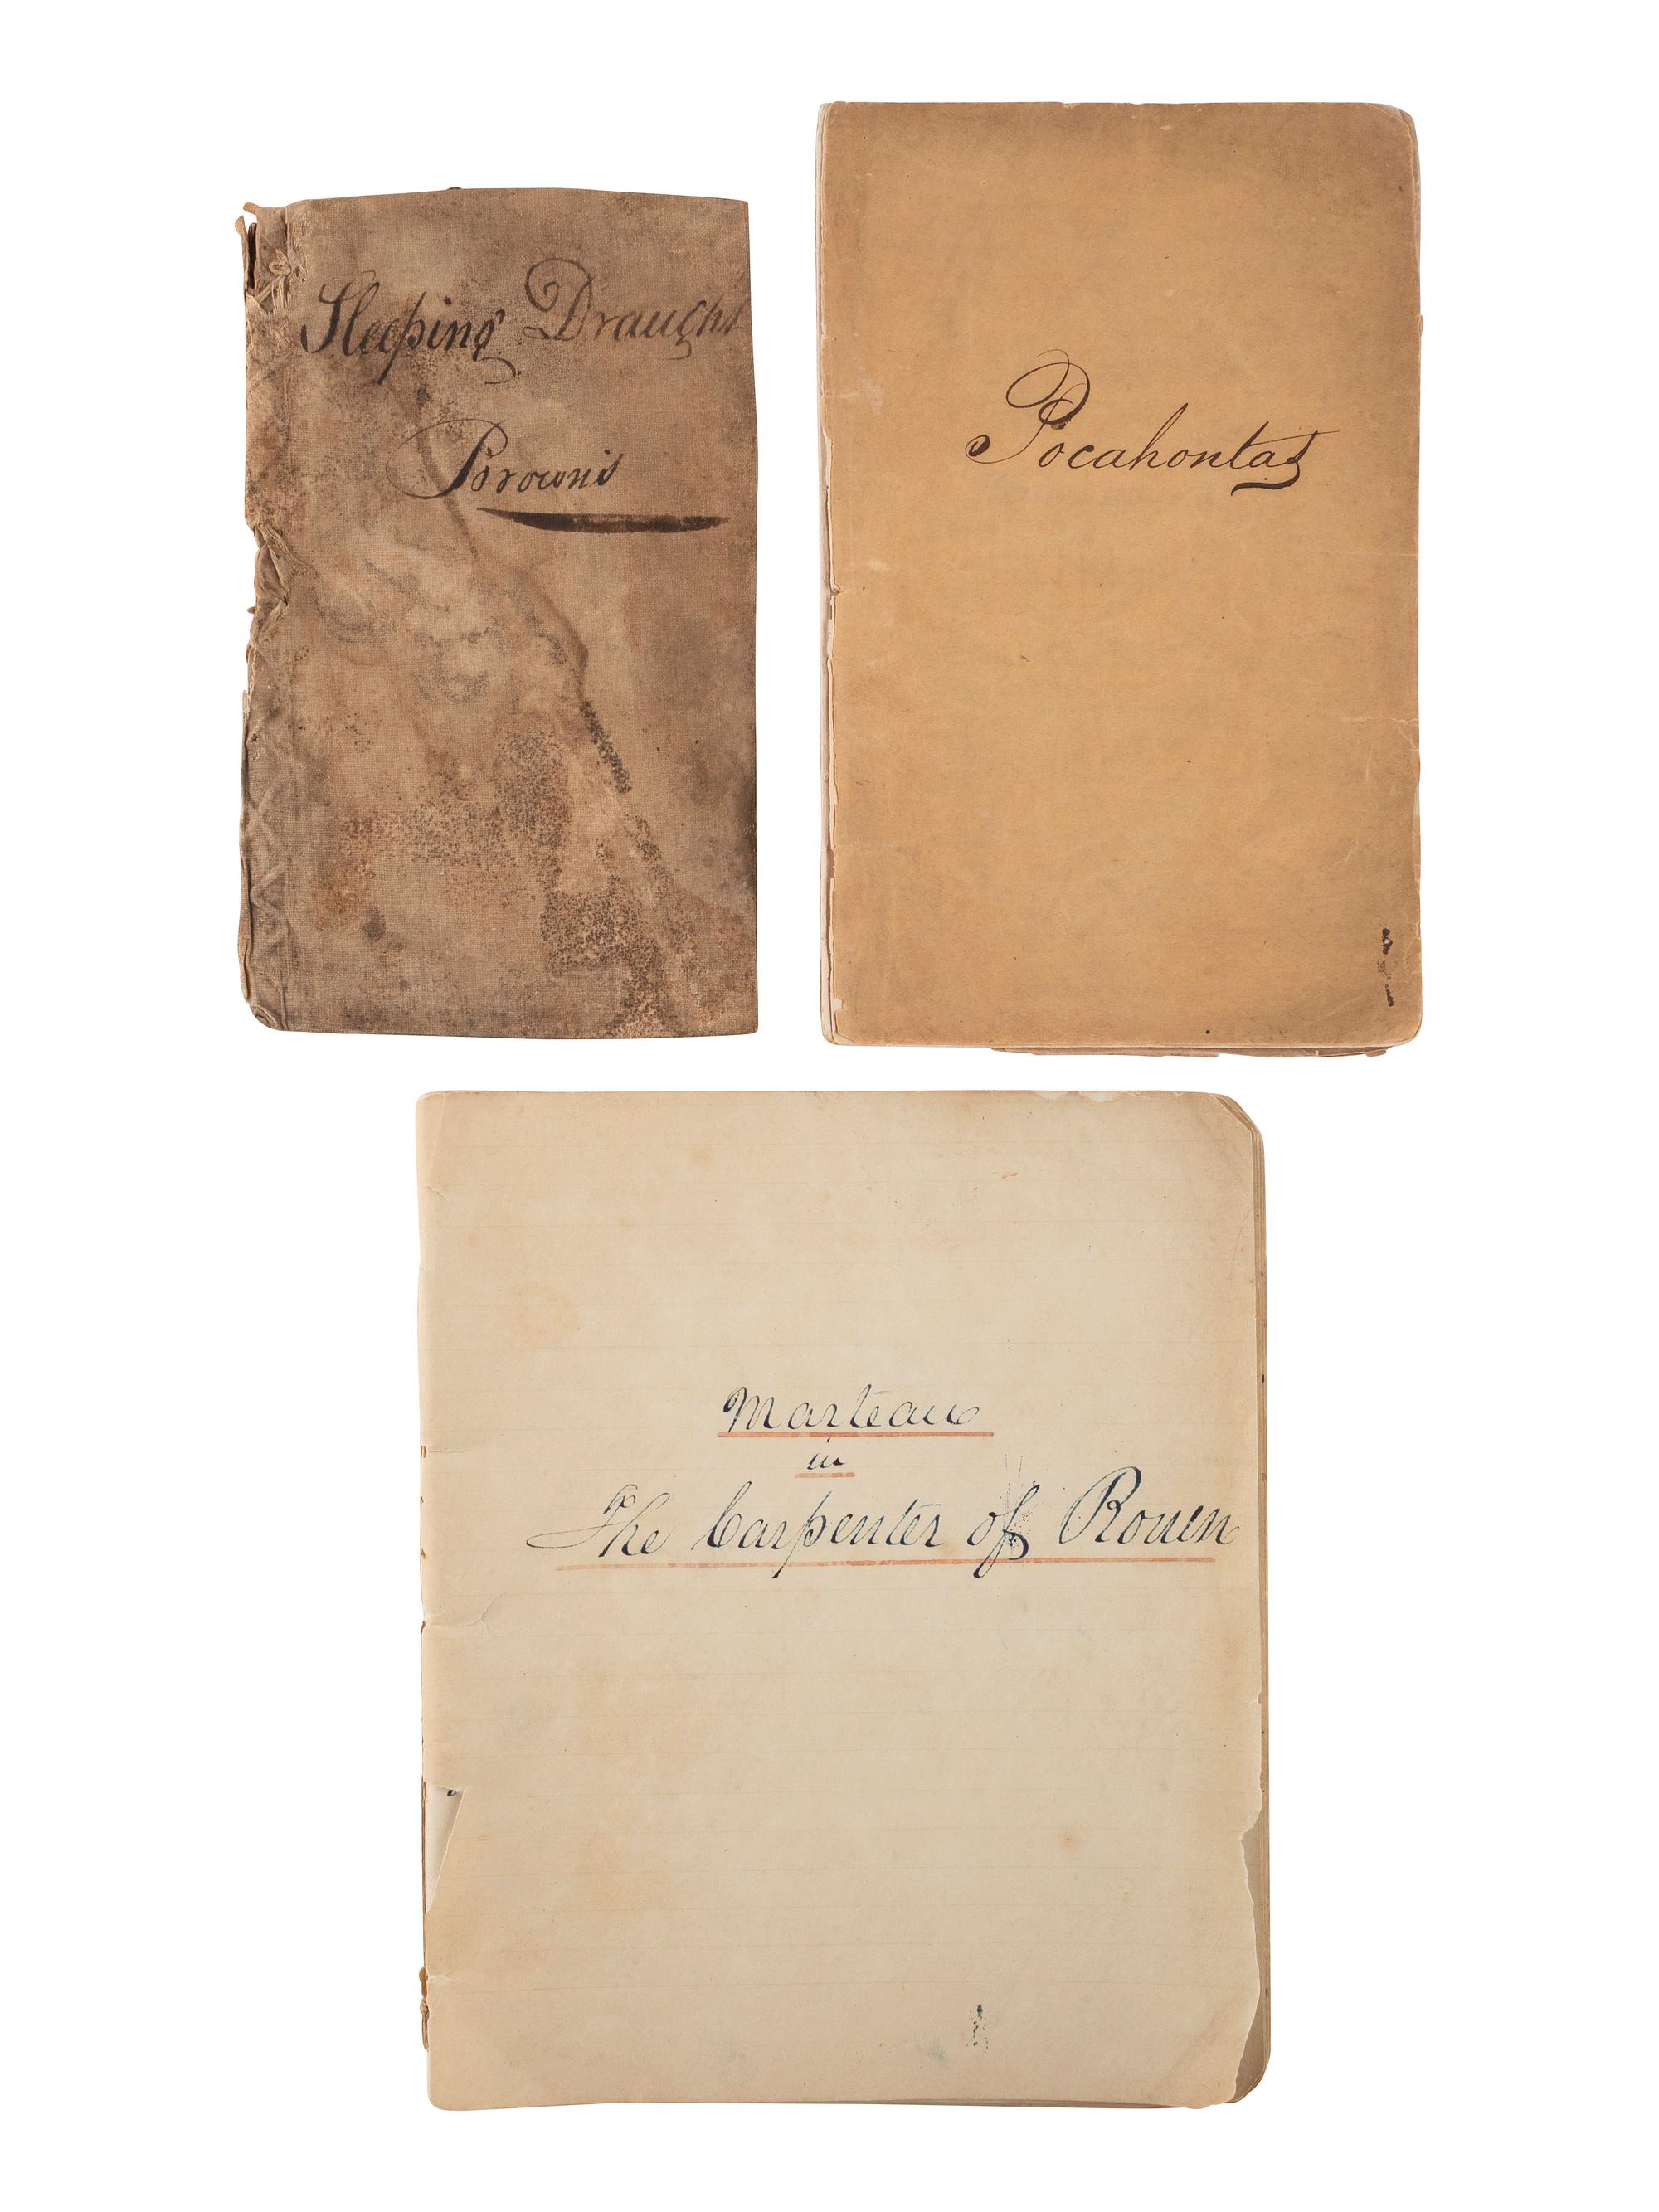 Sleeping Draught
Brown's
Pocahontas
Marteau
in
The Carpenter of Rouen